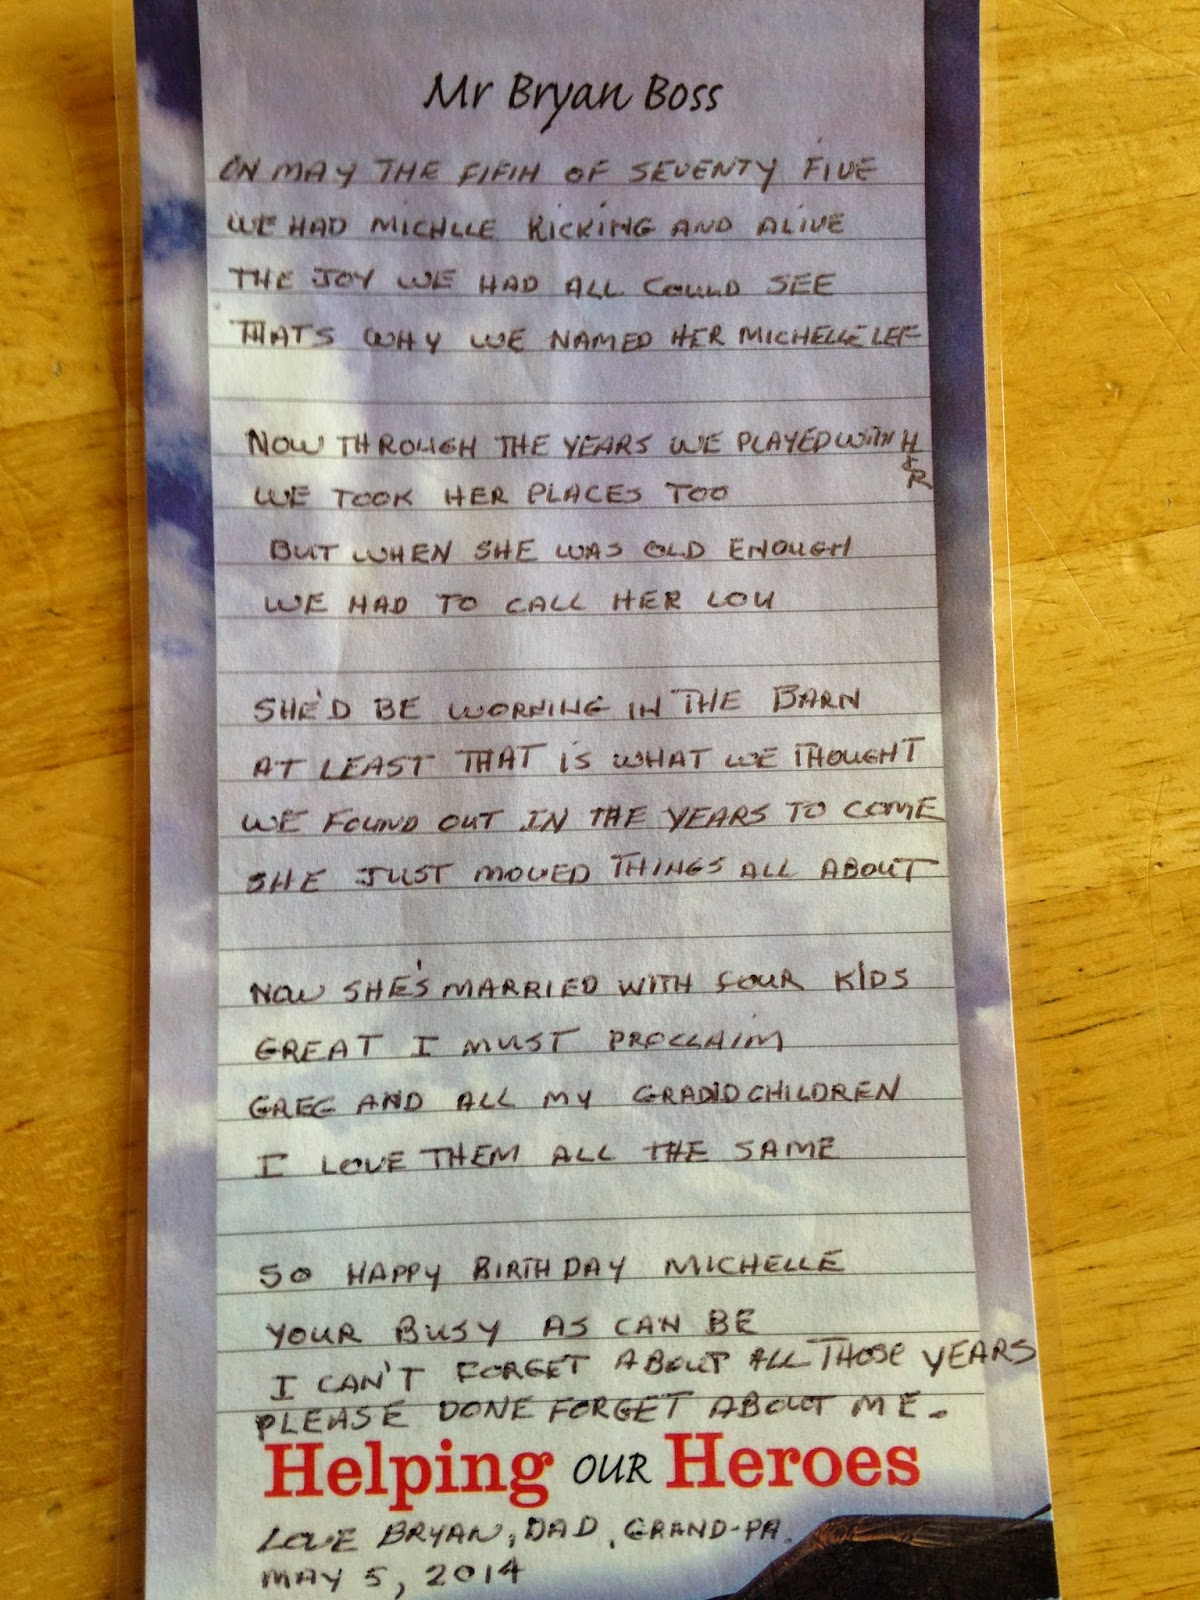 Mr Bryan Boss
ON MAY THE FIFIH OF SEVENTY FIVE
WE HAD MICHLLE KICKING AND ALIVE
THE JOY WE HAD ALL COULD SEE
THATS WHY WE NAMED HER MICHELLE LEE
NOW THROUGH THE YEARS WE PLAYED WITH HER
WE TOOK HER PLACES TOO
BUT WHEN SHE WAS OLD ENOUGH
WE HAD TO CALL HER LOU
SHE'D BE WORNING IN THE BARN
AT LEAST THAT IS WHAT WE THOUGHT
WE FOUND OUT IN THE YEARS TO COME
SHE JUST MOVED THINGS ALL ABOUT
NOW SHE'S MARRIED WITH FOUR KIDS
GREAT I MUST PROCLAIM
GREG AND ALL MY GRANDCHILDREN
I LOVE THEM ALL THE SAME
SO HAPPY BIRTHDAY MICHELLE
YOUR BUSY AS CAN BE
I CAN'T FORGET ABOUT ALL THOSE YEARS
PLEASE DONE FORGET ABOUT ME.
Helping OUR Heroes
LOVE BRYAN, DAD, GRAND-PA.
MAY 5, 2014